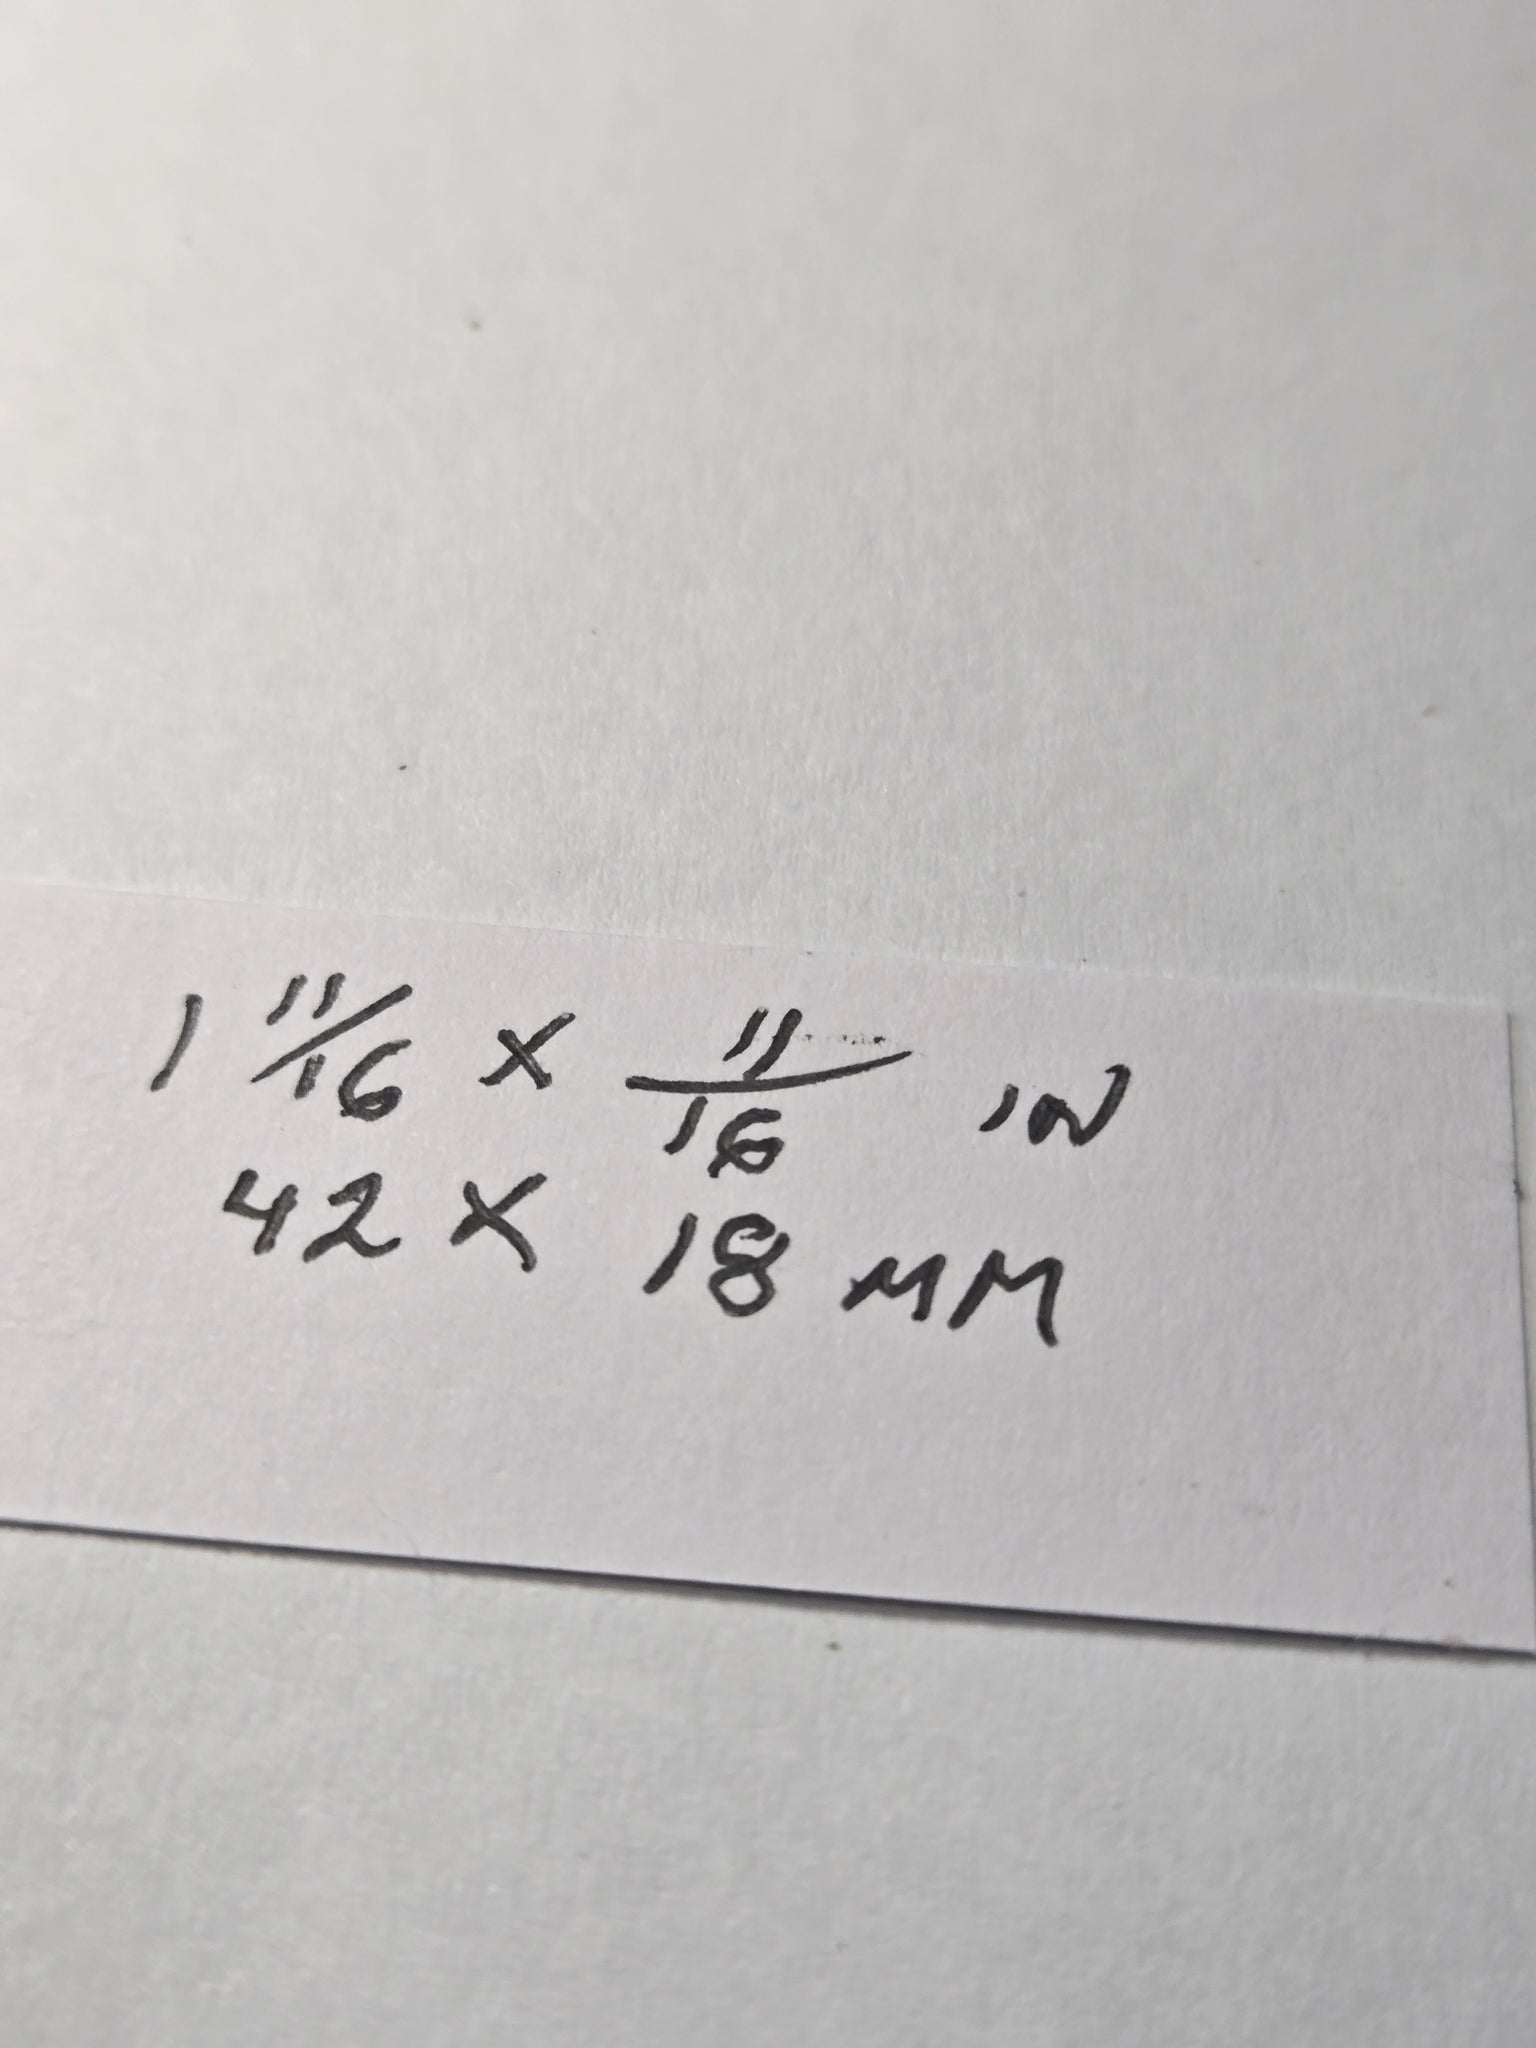 1 11/16 x 11/16 IN
42 x 18 MM